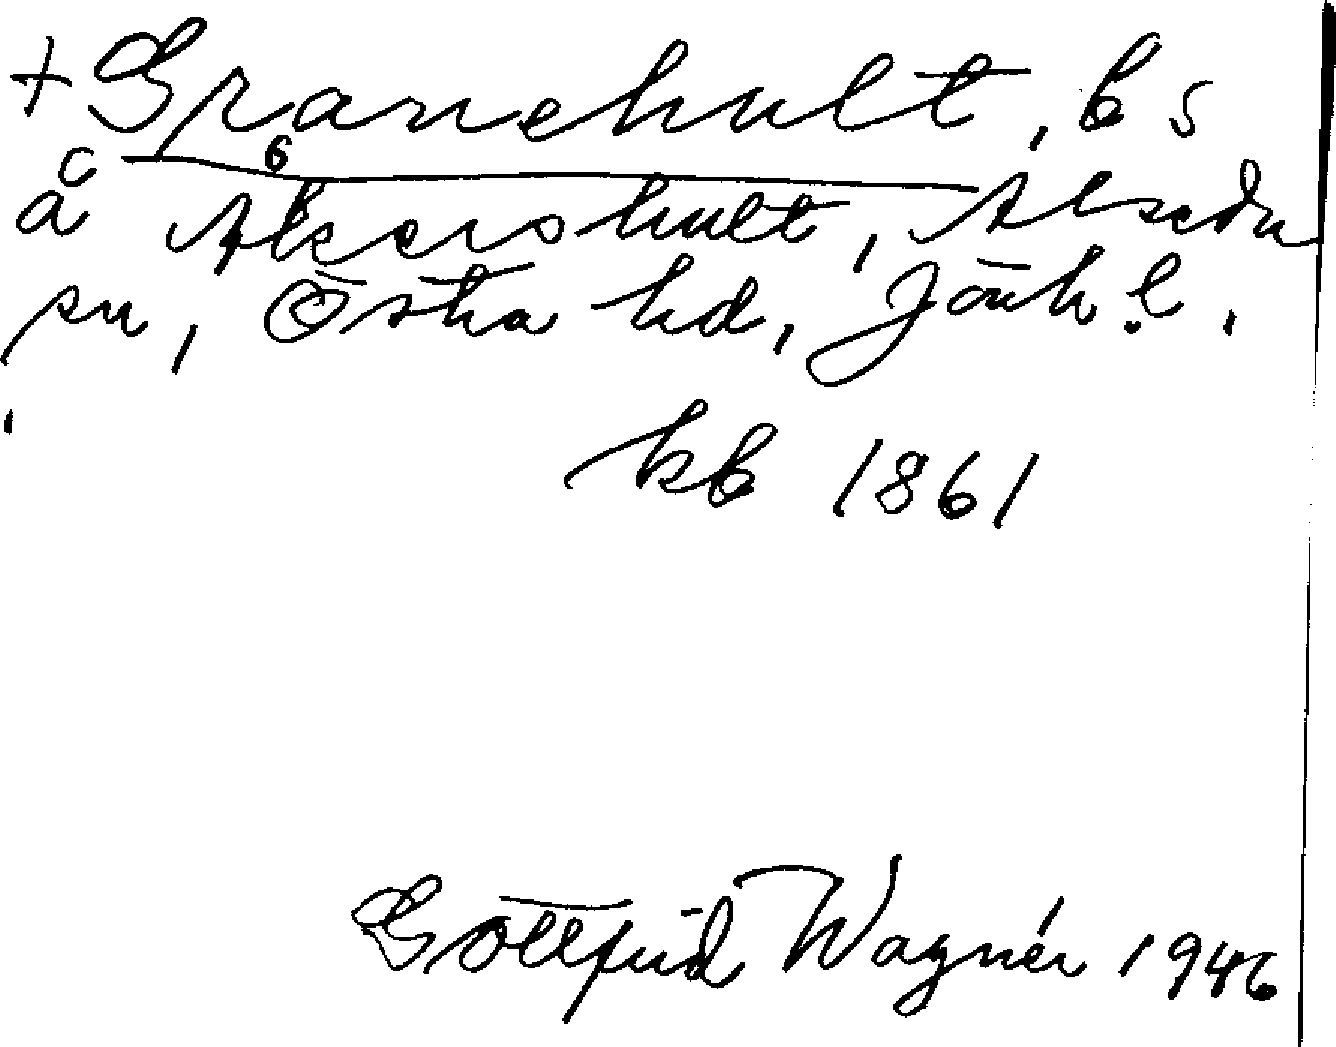 + Granehult, bs
å Åkershult, Alseda
sn, Östra hd, Jönk.l.
kb 1861
Gottfrid Wagnér 1946